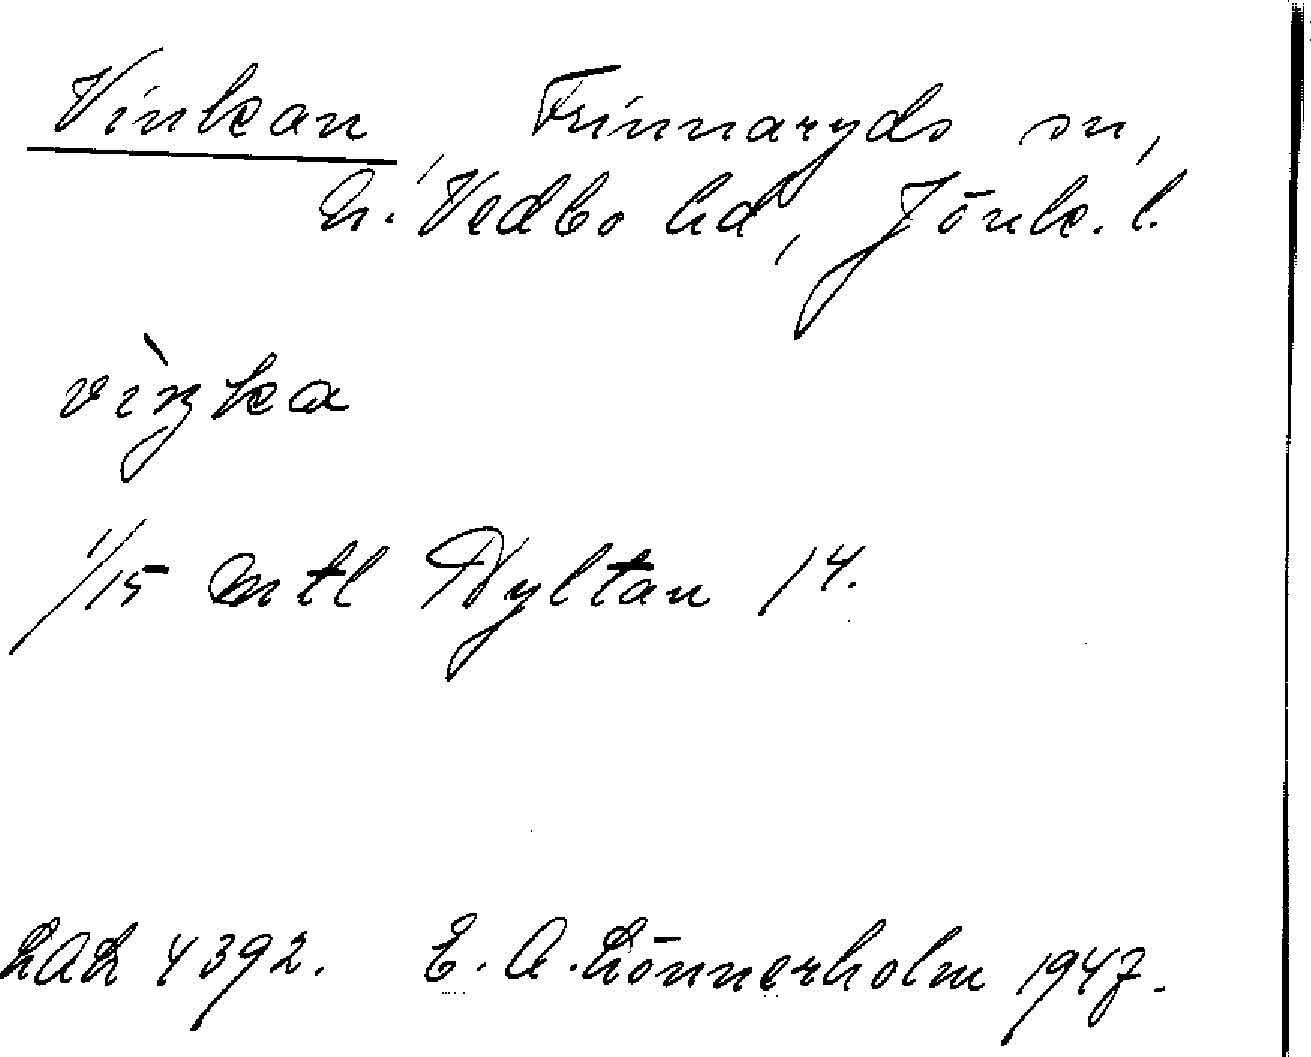 Vinkan, Frinnaryds sn,
N. Vedbo hd, Jönk. l.
vìŋka
1/15 mtl Nyltan 14.
LAL 4392. E. A. Lönnerholm 1947.